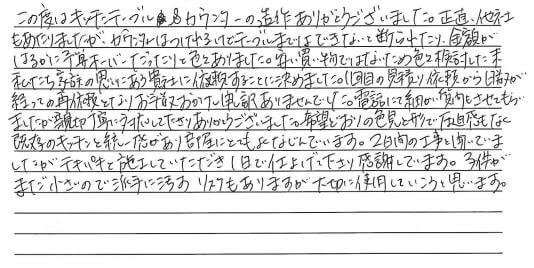 この度はキッチンテーブル&カウンターの造作ありがとうございました。正直、他社
もあたりましたが、カウンターはつけれるがテーブルまではできないと断られたり、金額が
はるかに予算オーバーだったりと色々ありました。安い買い物ではないため色々検討した末
私たち家族の思いにあう貴社に依頼することに決めました。1回目の見積り依頼から日時が
経っての再依頼となりお手数おかけし申し訳ありませんでした。電話にて細かい質問をさせてもらい
ましたが親切丁寧に対応して下さりありがとうございました。希望どおりの色見と形で圧迫感もなく
既存のキッチンと統一感があり部屋にとてもよくなじんでいます。2日間の工事と聞いていま
したがテキパキと施工していただき1日で仕上げて下さり感謝しています。子供が
まだ小さいので派手に汚すリスクもありますが大切に使用していこうと思います。